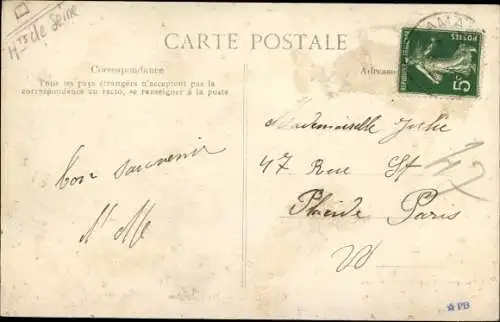 Hts de Seine
CARTE POSTALE
Correspondance
Tous les pays étrangers n'acceptent pas la
correspondance au recto, se renseigner à la poste
Adresse
POSTES
5c
Mademoiselle
47 Rue St
Placide Paris
47
bon souvenir
PB